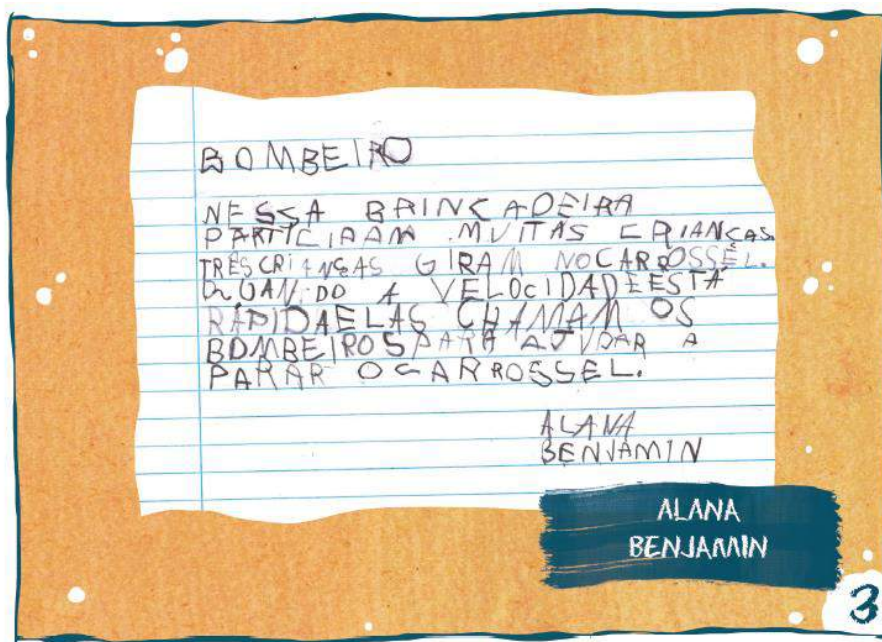 BOMBEIRO
NESSA BRINCADEIRA
PARTICIPAM MUITAS CRIANÇAS.
TRÊS CRIANÇAS GIRAM NO CARROSSEL.
QUANDO A VELOCIDADE ESTÁ
RÁPIDA ELAS CHAMAM OS
BOMBEIROS PARA AJUDAR A
PARAR O CARROSSEL.
ALANA
BENJAMIN
ALANA
BENJAMIN
3